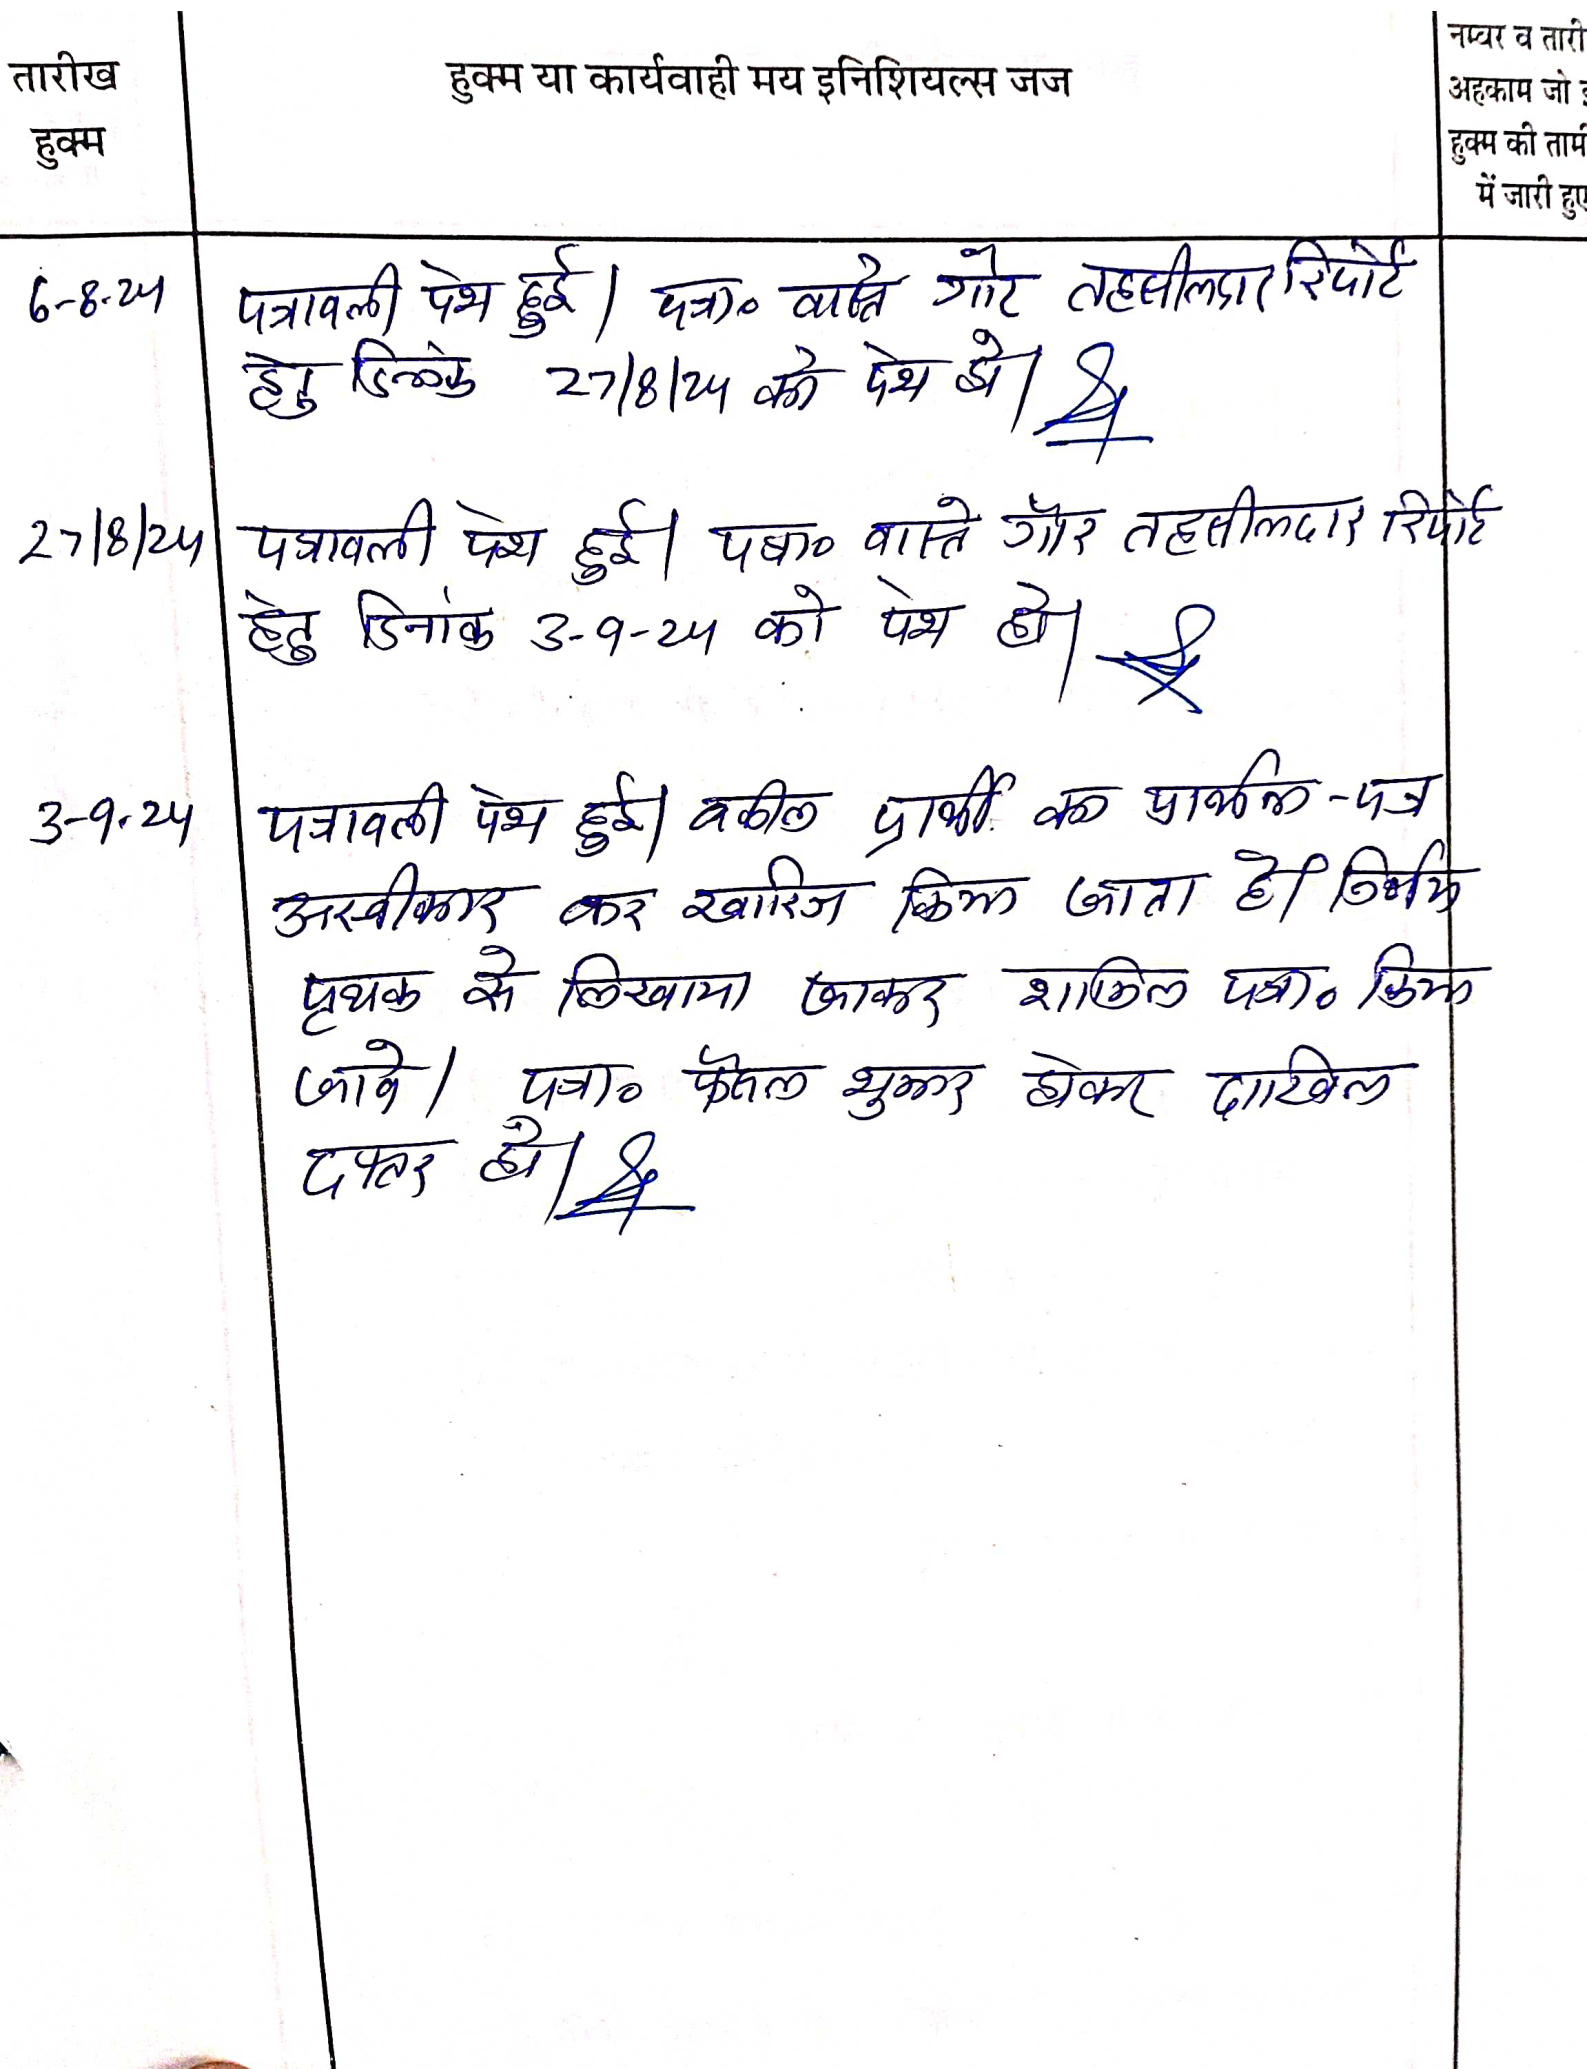 तारीख
हुक्म
हुक्म या कार्यवाही मय इनिशियल्स जज
नम्बर व तारी
अहकाम जो इ
हुक्म की तामी
में जारी हुए
6-8-24
पत्रावली पेश हुई। पत्रा० वास्ते गौर तहसीलदार रिपोर्ट
हेतु दिनांक 27/8/24 को पेश हो।
27/8/24
पत्रावली पेश हुई। पत्रा० वास्ते गौर तहसीलदार रिपोर्ट
हेतु दिनांक 3-9-24 को पेश हो।
3-9-24
पत्रावली पेश हुई। वकील प्रार्थी का प्रार्थना-पत्र
अस्वीकार कर खारिज किया जाता है। निर्णय
पृथक से लिखाया जाकर शामिल पत्रा० किया
जावे। पत्रा० फैसल शुमार होकर दाखिल
दफ्तर हो।